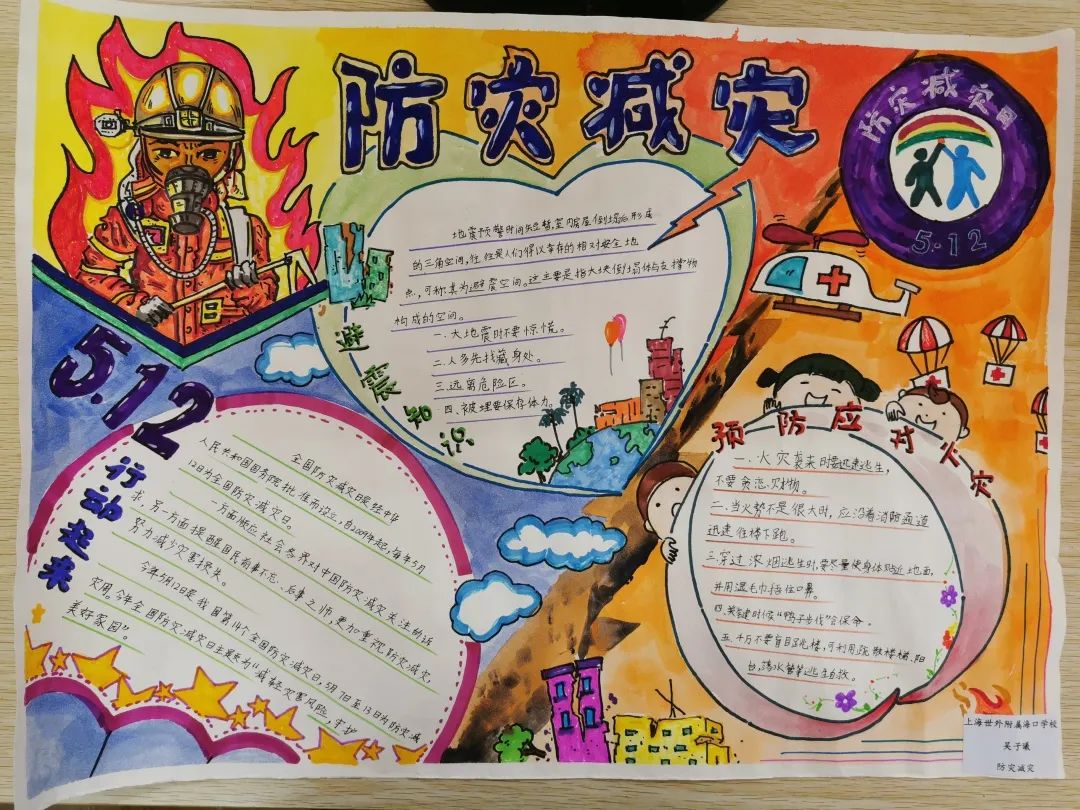 防灾减灾
防灾减灾
5·12
地震预警时间短暂,室内房屋倒塌后形成
的三角空间,往往是人们得以幸存的相对安全地
点,可称其为避震空间。这主要是指大块倒塌体与支撑物
构成的空间。
一.大地震时不要惊慌。
二.人多先找藏身处。
三.远离危险区。
四.被埋要保存体力。
避震知识
5.12
行动起来
全国防灾减灾日是经中华
人民共和国国务院批准而设立,自2009年起,每年5月
12日为全国防灾减灾日。
一方面顺应社会各界对中国防灾减灾关注的诉
求,另一方面提醒国民前事不忘、后事之师,更加重视防灾减灾,
努力减少灾害损失。
今年5月12日是我国第14个全国防灾减灾日,5月7日至13日为防灾减
灾周。今年全国防灾减灾日主题为“减轻灾害风险,守护
美好家园”。
预防应对火灾
一.火灾袭来时要迅速逃生,
不要贪恋财物。
二.当火势不是很大时,应沿着消防通道
迅速往楼下跑。
三.穿过浓烟逃生时,要尽量使身体贴近地面,
并用湿毛巾捂住口鼻。
四.关键时候“鸭子步伐”会保命。
五.千万不要盲目跳楼,可利用疏散楼梯、阳
台,落水管等逃生自救。
上海世外附属海口学校
吴子曦
防灾减灾